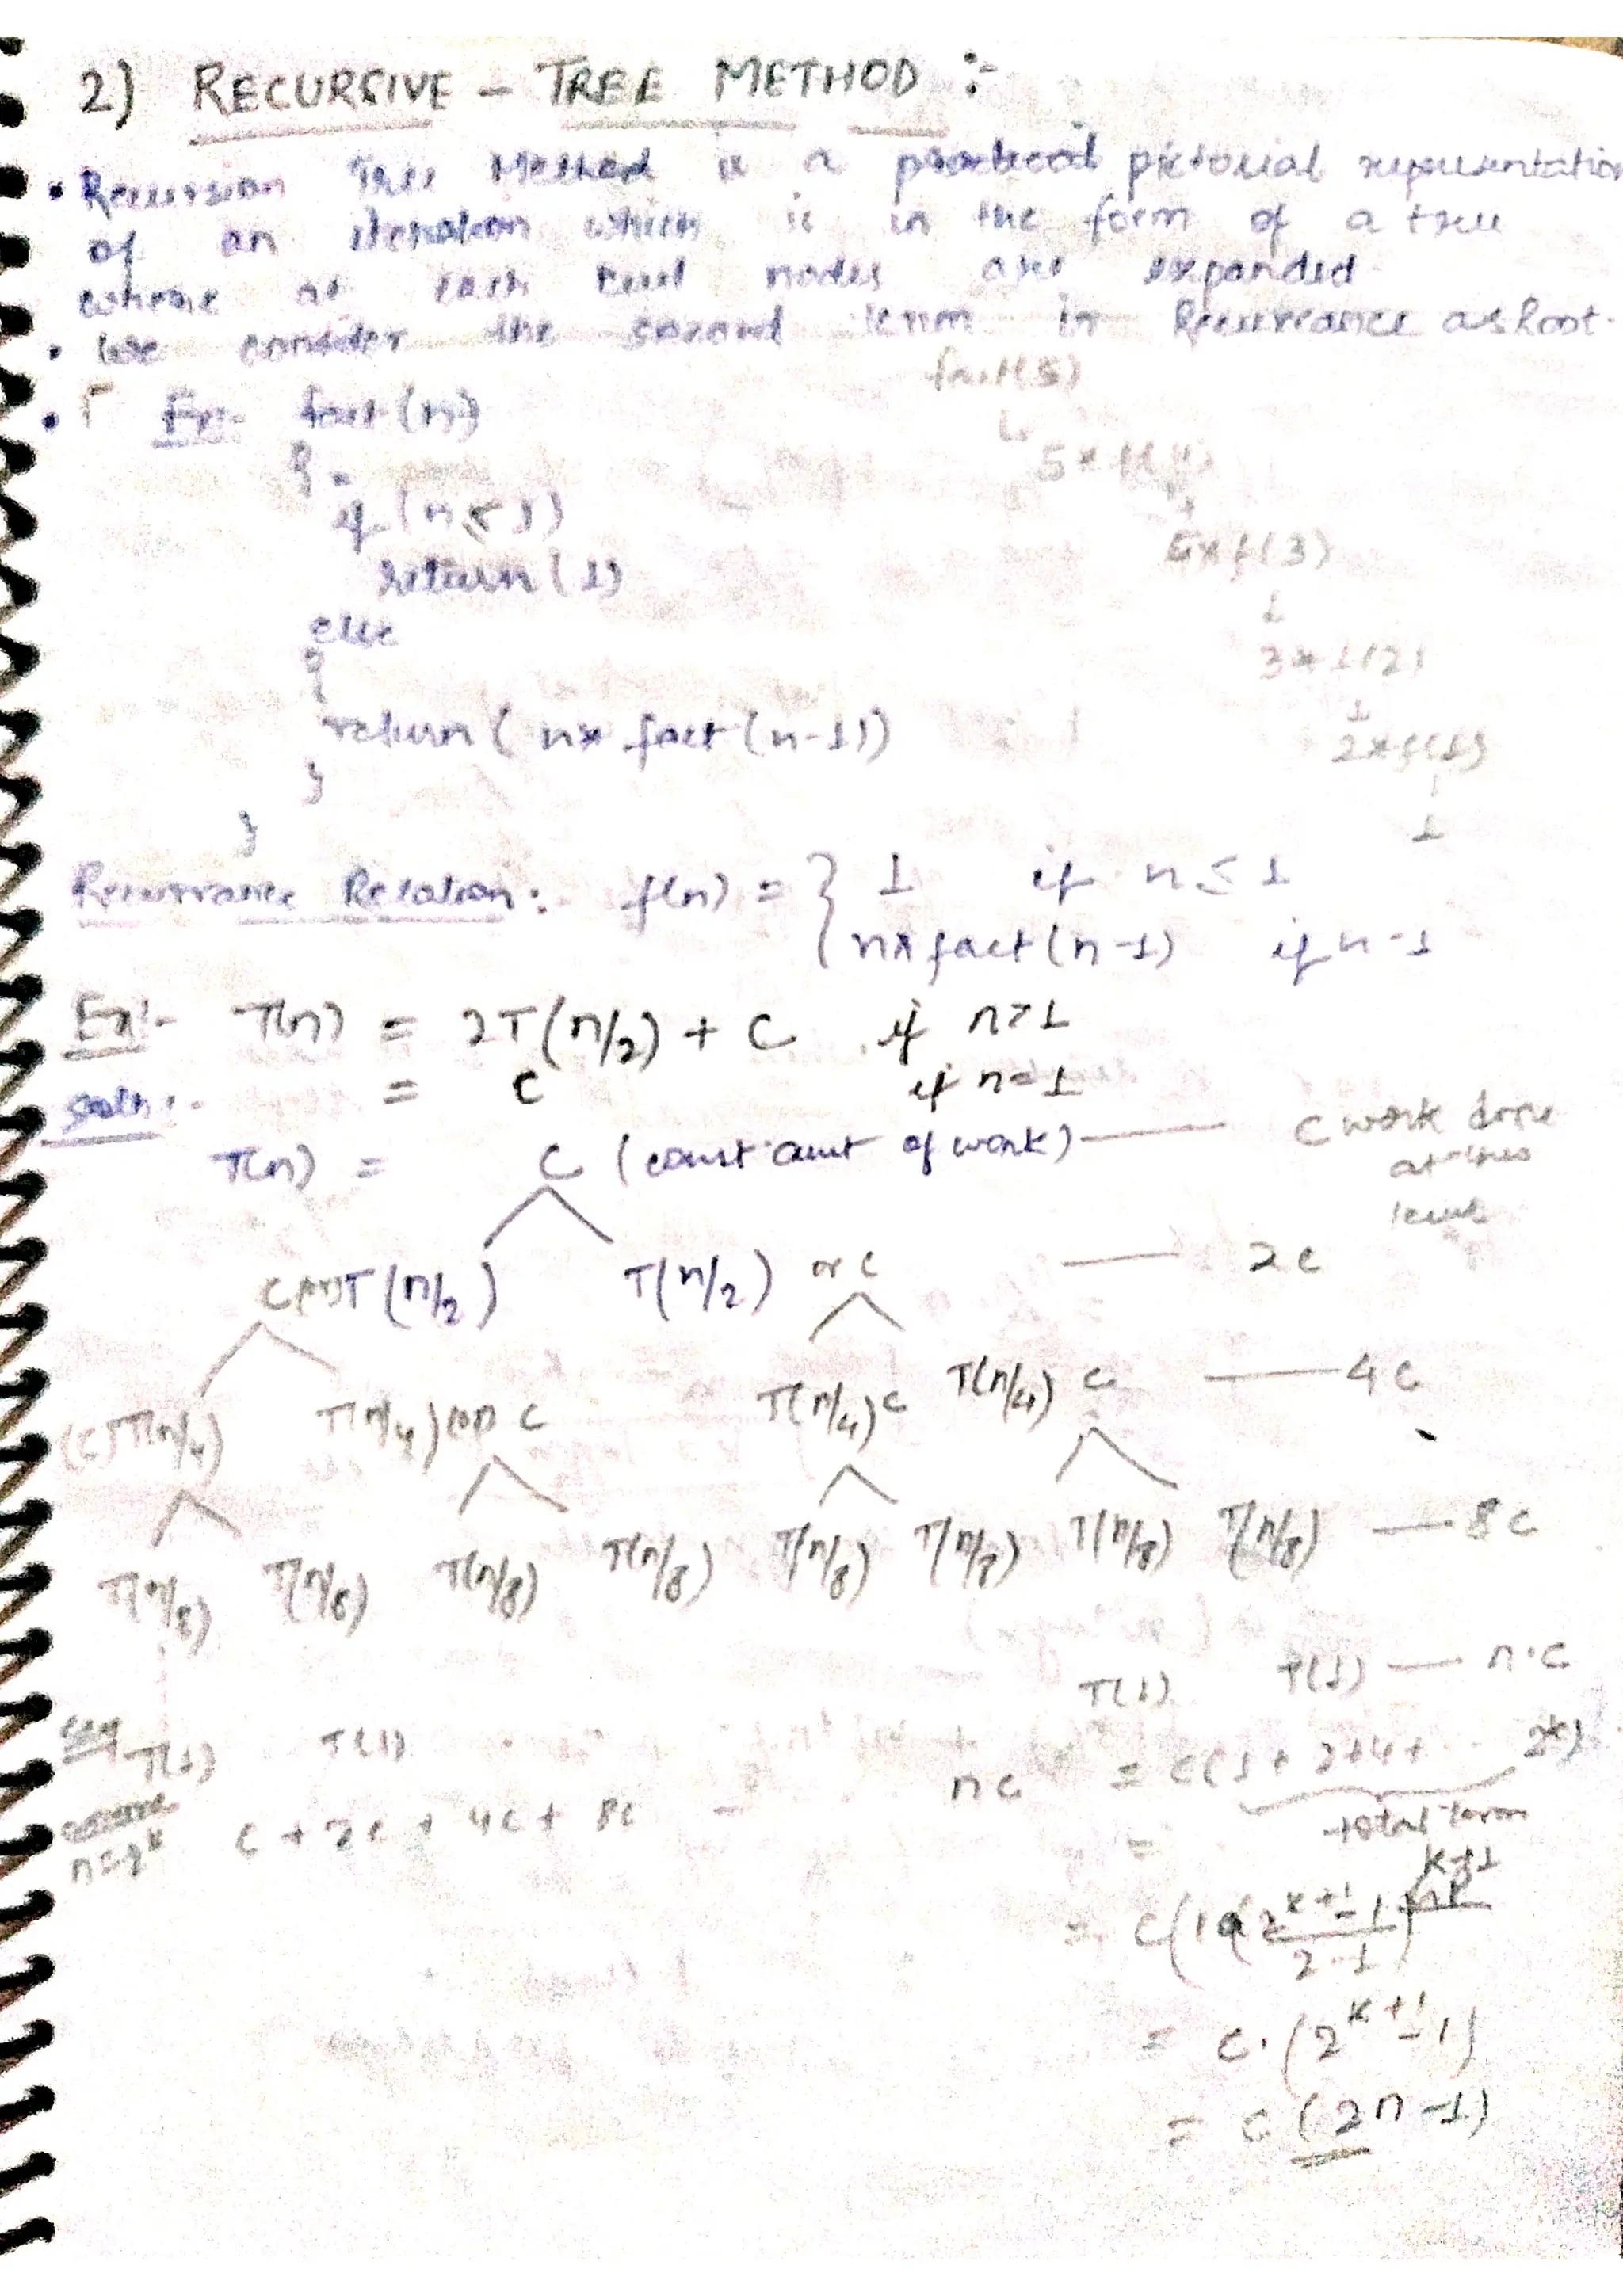 2) RECURSIVE - TREE METHOD :-
• Recursion Tree Method is a pictorial representation
of an iteration which is in the form of a tree
where at each level nodes are expanded.
• We consider the second term in Recurrance as Root.
• Ex:- fact(n)
{
if (n ≤ 1)
return (1)
else
{
return ( n* fact (n-1))
}
}
fact(5)
5 * f(4)
f(3)
3 * f(2)
2 * f(1)
1
Recurrance Relation:- f(n) = { 1 if n ≤ 1
n* fact (n-1) if n-1
Ex:- T(n) = 2T(n/2) + C if n>1
= C if n=1
Soln:-
T(n) = C (const amt of work) —— C work done
at this
level
C (or) T(n/2) T(n/2) or C —— 2C
(C) T(n/4) T(n/4) (or) C T(n/4) C T(n/4) C —— 4C
T(n/8) T(n/8) T(n/8) T(n/8) T(n/8) T(n/8) T(n/8) T(n/8) —— 8C
T(1) T(1) T(1) T(1) —— n·C
assume
n=2^k C + 2C + 4C + 8C - nC = C(1 + 2+4+ ... 2^k)
total term
k+1
=
= C(1 (2^{k+1} - 1)/(2-1))
= C·(2^{k+1} - 1)
= C (2n -1)